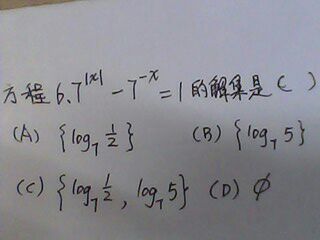 方程 6.7^{|x|} - 7^{-x} = 1 的解集是 ( )
(A) {log_7 1/2} (B) {log_7 5}
(C) {log_7 1/2, log_7 5} (D) ∅